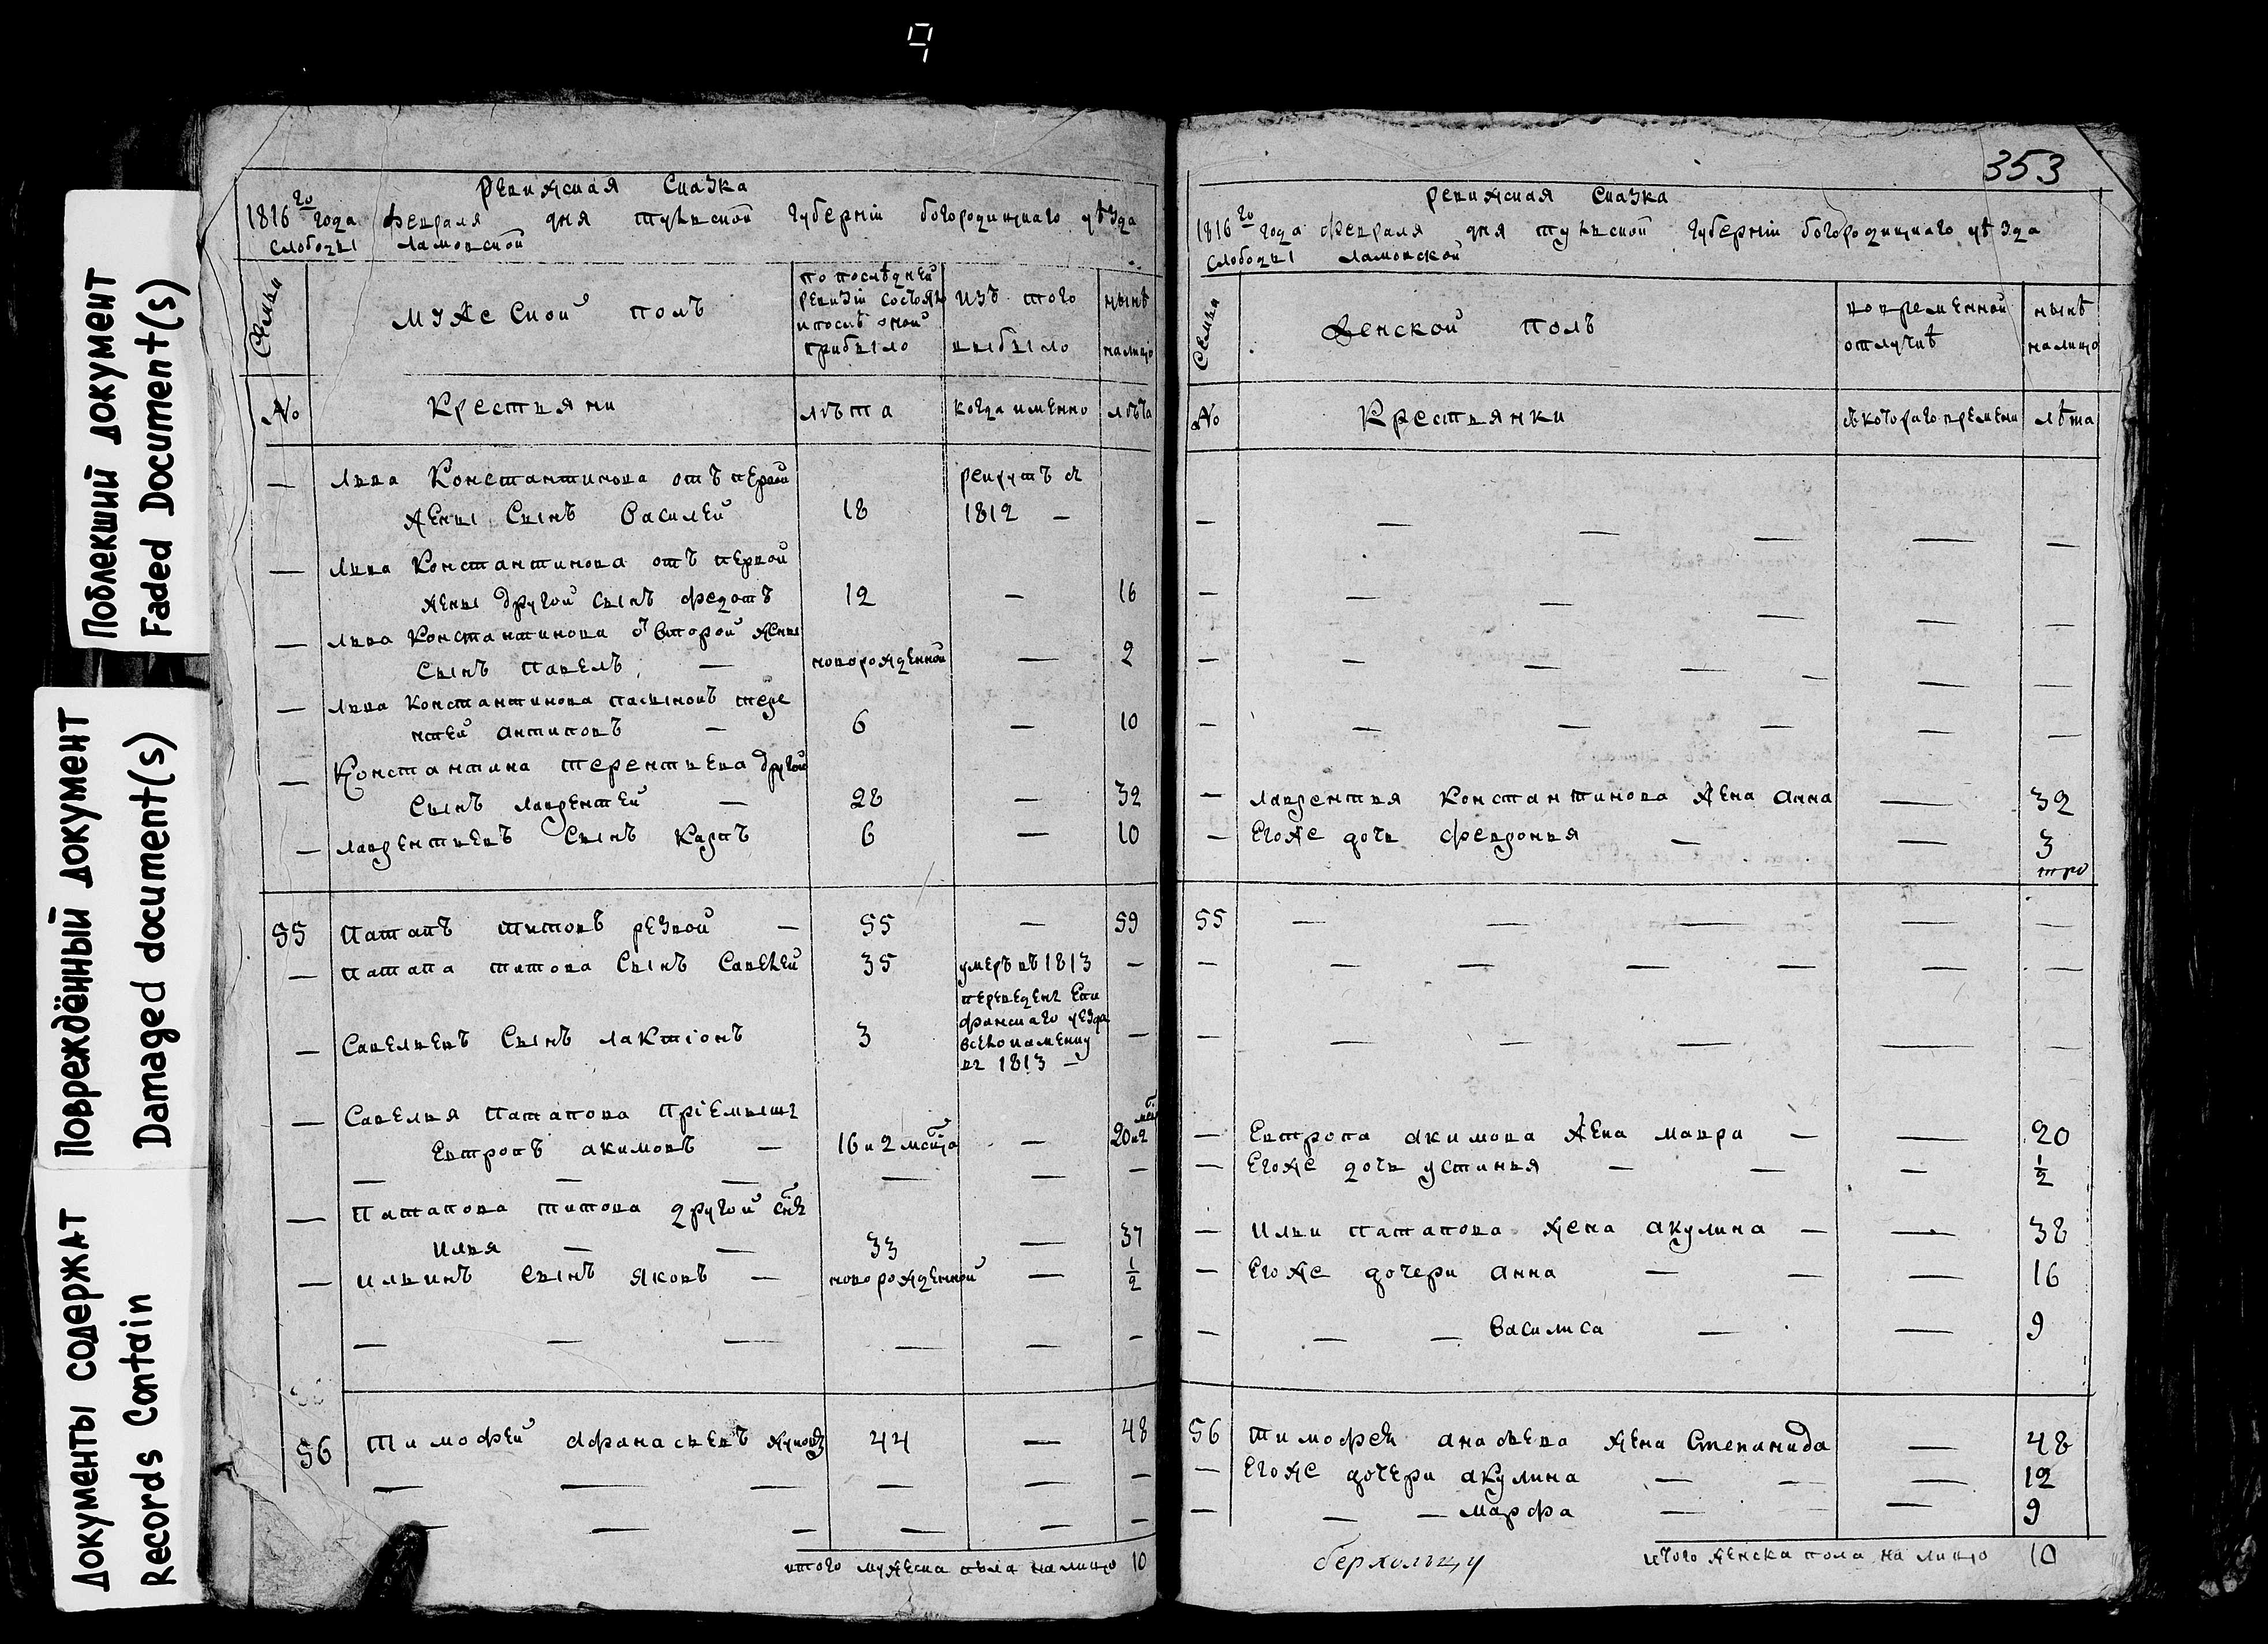 Поблекший документ
Faded Document(s)
Повреждённый документ
Damaged document(s)
Документы содержат
Records Contain
Ревижская Сказка
1816го года февраля дня тульской губернiи богородицкаго уѣзда
слободы ламовской
Семьи
Мужеской полъ
по послѣдней ревизiи состояло и послѣ оной прибыло
изъ того выбыло
нынѣ налицо
№
Крестьяни
лѣта
когда именно
лѣта
— Льва Константинова отъ первой рекрутъ въ
жены Сынъ Василей 18 1812 —
— Льва Константинова отъ первой
жены другой сынъ федотъ 12 — 16
— Льва Константинова от второй жены
Сынъ Павелъ — новорожденной — 2
— Льва Константинова пасынокъ тере
нтей антиповъ — 6 — 10
— Константина терентьева другой
Сынъ лаврентей — 28 — 32
— лаврентьевъ Сынъ Карпъ 6 — 10
55 Патапъ титовъ резвой — 55 — 59
— патапа титова Сынъ Савелей 35 умеръ въ 1813 —
переведенъ Епи
фанскаго уезда
— Савельевъ Сынъ лактiонъ 3 —
въ 1813 —
— Савелья Патапова Прiемышъ
Евтропъ акимовъ — 16 и 2 мсца — 20 и 2 мсц
— — — — — —
— Патапова титова другой снъ
Илья — — 33 — 37
— ильинъ сынъ яковъ — новорожденной — 1/2
— — — — — —
56 Тимофей афанасьевъ 44 — 48
— — — — — —
— — — — — —
итого мужеска пола налицо 10
353
ревижская Сказка
1816го года февраля дня тульской губернiи богородицкаго уѣзда
слободы ламовской
Семьи
Женской полъ
во временной отлучкѣ
нынѣ налицо
№
Крестьянки
съ котораго времени
лѣта
— — — — — —
— — — — — —
— — — — — —
— — — — — —
— лаврентья Константинова жена анна — 32
— Егоже дочь февронья — — 3
три
55 — — — — —
— — — — — — —
— — — — — —
— Евтропа акимова жена мавра — — 20
— Егоже дочь устинья — — — 1/2
— ильи патапова жена акулина — — 38
— Егоже дочери анна — — — 16
— — — Василиса — — 9
56 Тимофея анасьева жена Степанида — 48
— Егоже дочери акулина — — — 12
— — — марфа — — 9
итого женска пола на лицо 10